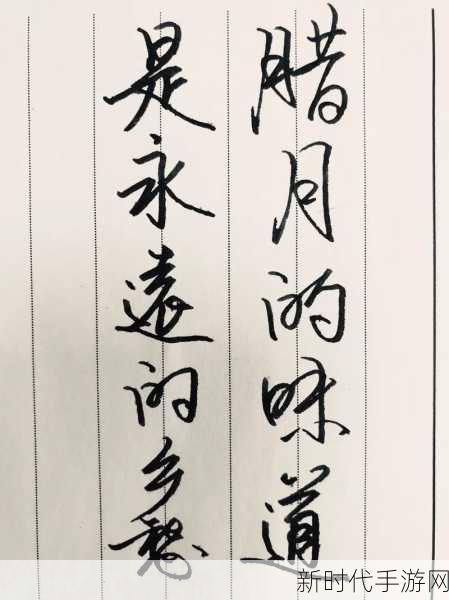 腊月的味道
是永遠的乡愁
新时代手游网